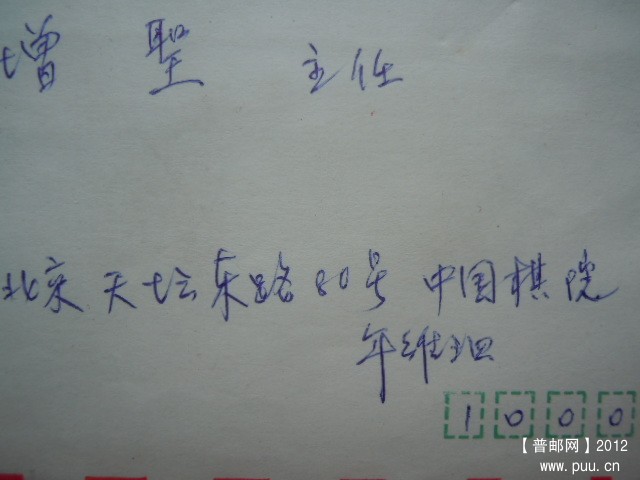 增聖 主任
北京天坛东路80号 中国棋院
年维泗
1000
【普邮网】2012
www.puu.cn